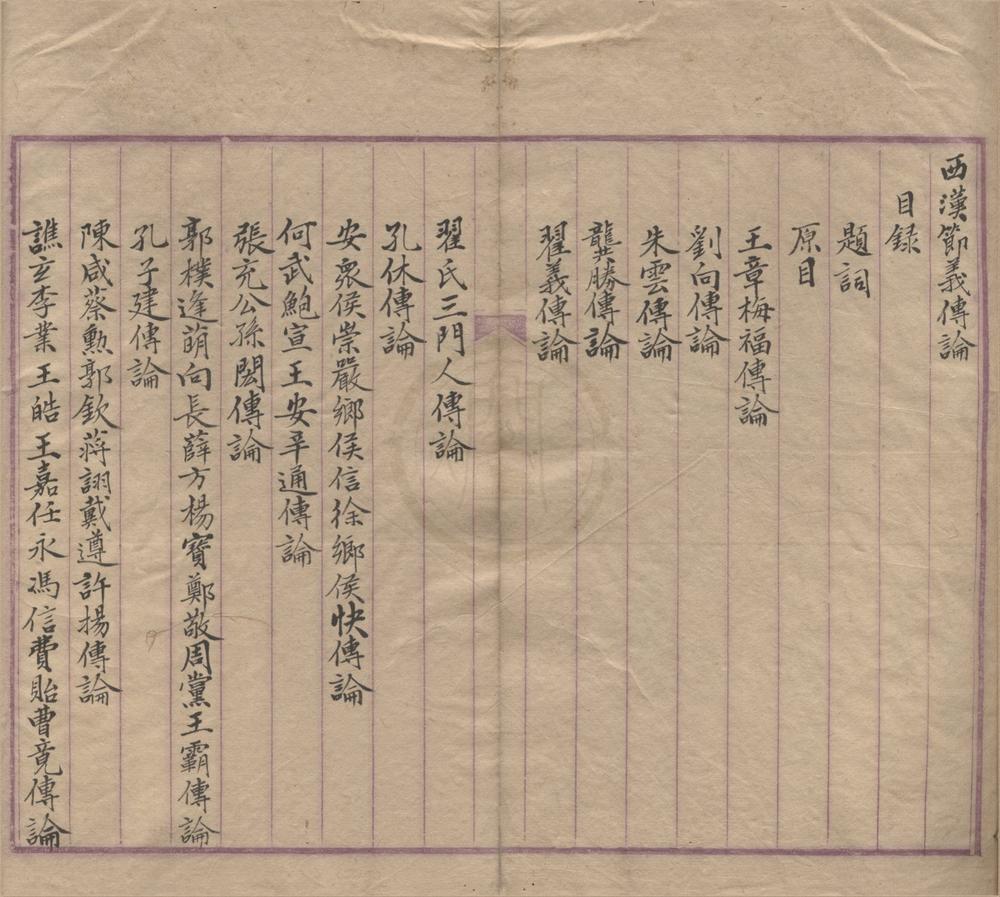 西漢節義傳論
目録
題詞
原目
王章梅福傳論
劉向傳論
朱雲傳論
龔勝傳論
翟義傳論
翟氏三門人傳論
孔休傳論
安衆侯崇嚴鄉侯信徐鄉侯快傳論
何武鮑宣王安辛通傳論
張充公孫閎傳論
郭樸逢萌向長薛方楊寶鄭敬周黨王霸傳論
孔子建傳論
陳咸蔡勲郭欽蔣詡戴遵許揚傳論
譙玄李業王皓王嘉任永馮信費貽曹竟傳論